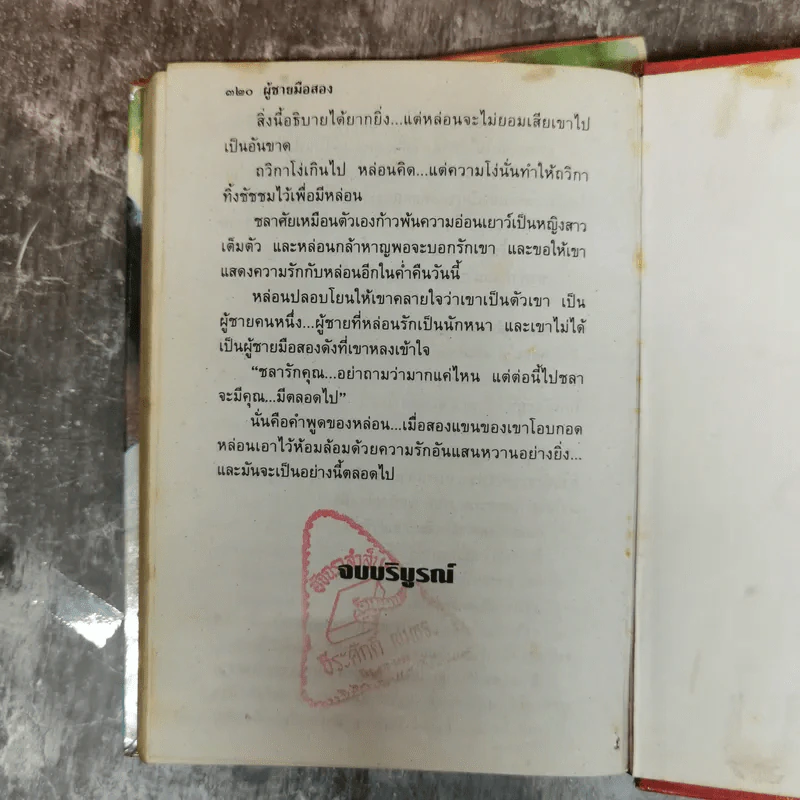 ๓๒๐ ผู้ชายมือสอง
สิ่งนี้อธิบายได้ยากยิ่ง...แต่หล่อนจะไม่ยอมเสียเขาไป
เป็นอันขาด
ถวิกาโง่เกินไป หล่อนคิด...แต่ความโง่นั่นทำให้ถวิกา
ทิ้งชัชชมไว้เพื่อมีหล่อน
ชลาศัยเหมือนตัวเองก้าวพ้นความอ่อนเยาว์เป็นหญิงสาว
เต็มตัว และหล่อนกล้าหาญพอจะบอกรักเขา และขอให้เขา
แสดงความรักกับหล่อนอีกในค่ำคืนวันนี้
หล่อนปลอบโยนให้เขาคลายใจว่าเขาเป็นตัวเขา เป็น
ผู้ชายคนหนึ่ง...ผู้ชายที่หล่อนรักเป็นนักหนา และเขาไม่ได้
เป็นผู้ชายมือสองดังที่เขาหลงเข้าใจ
“ชลารักคุณ...อย่าถามว่ามากแค่ไหน แต่ต่อนี้ไปชลา
จะมีคุณ...มีตลอดไป”
นั่นคือคำพูดของหล่อน...เมื่อสองแขนของเขาโอบกอด
หล่อนเอาไว้ห้อมล้อมด้วยความรักอันแสนหวานอย่างยิ่ง...
และมันจะเป็นอย่างนี้ตลอดไป
จบบริบูรณ์
ธีระศักดิ์